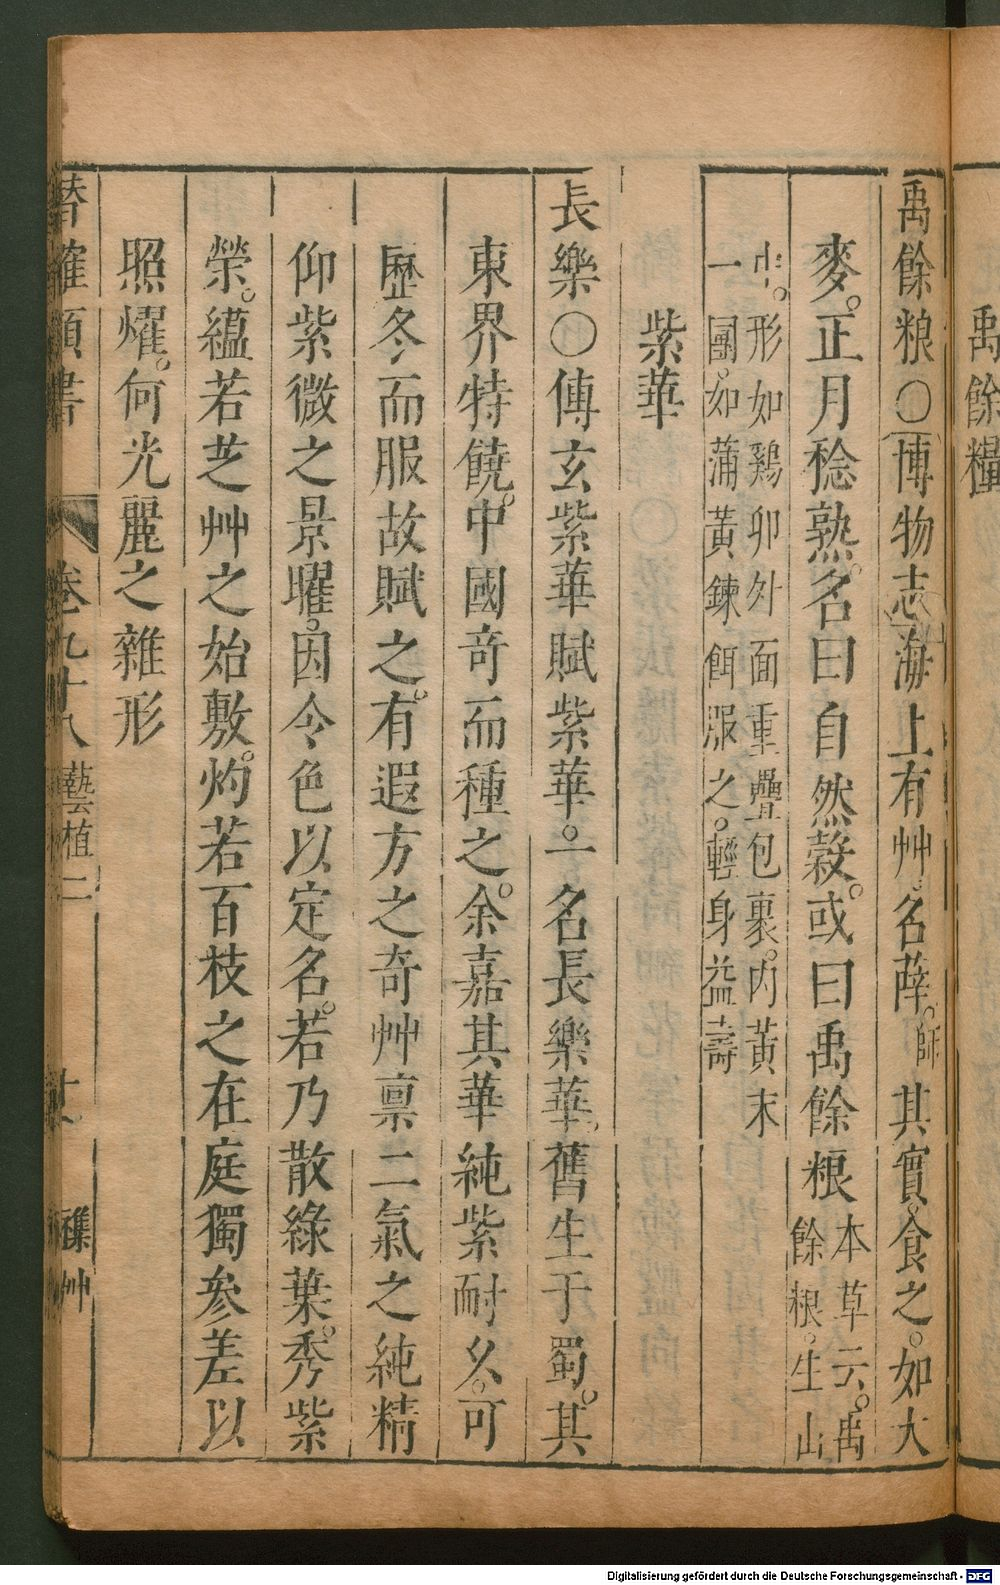 禹餘糧
禹餘粮○博物志海上有艸名蒒師其實食之如大
麥正月稔熟名曰自然穀或曰禹餘粮
本草云禹
餘粮生山
中形如鵞卵外面重疊包裹內黃末
一團如蒲黃鍊餌服之輕身益壽
紫華
長樂○傅玄紫華賦紫華一名長樂華舊生于蜀其
東界特饒中國奇而種之余嘉其華純紫耐久可
歷冬而服故賦之有遐方之奇艸禀二氣之純精
仰紫微之景曜因令色以定名若乃散綠葉秀紫
榮蘊若芝艸之始敷灼若百枝之在庭獨參差以
照燿何光麗之雜形
潛確類書 卷九十八 藝植二 雜艸
Digitalisierung gefördert durch die Deutsche Forschungsgemeinschaft - DFG